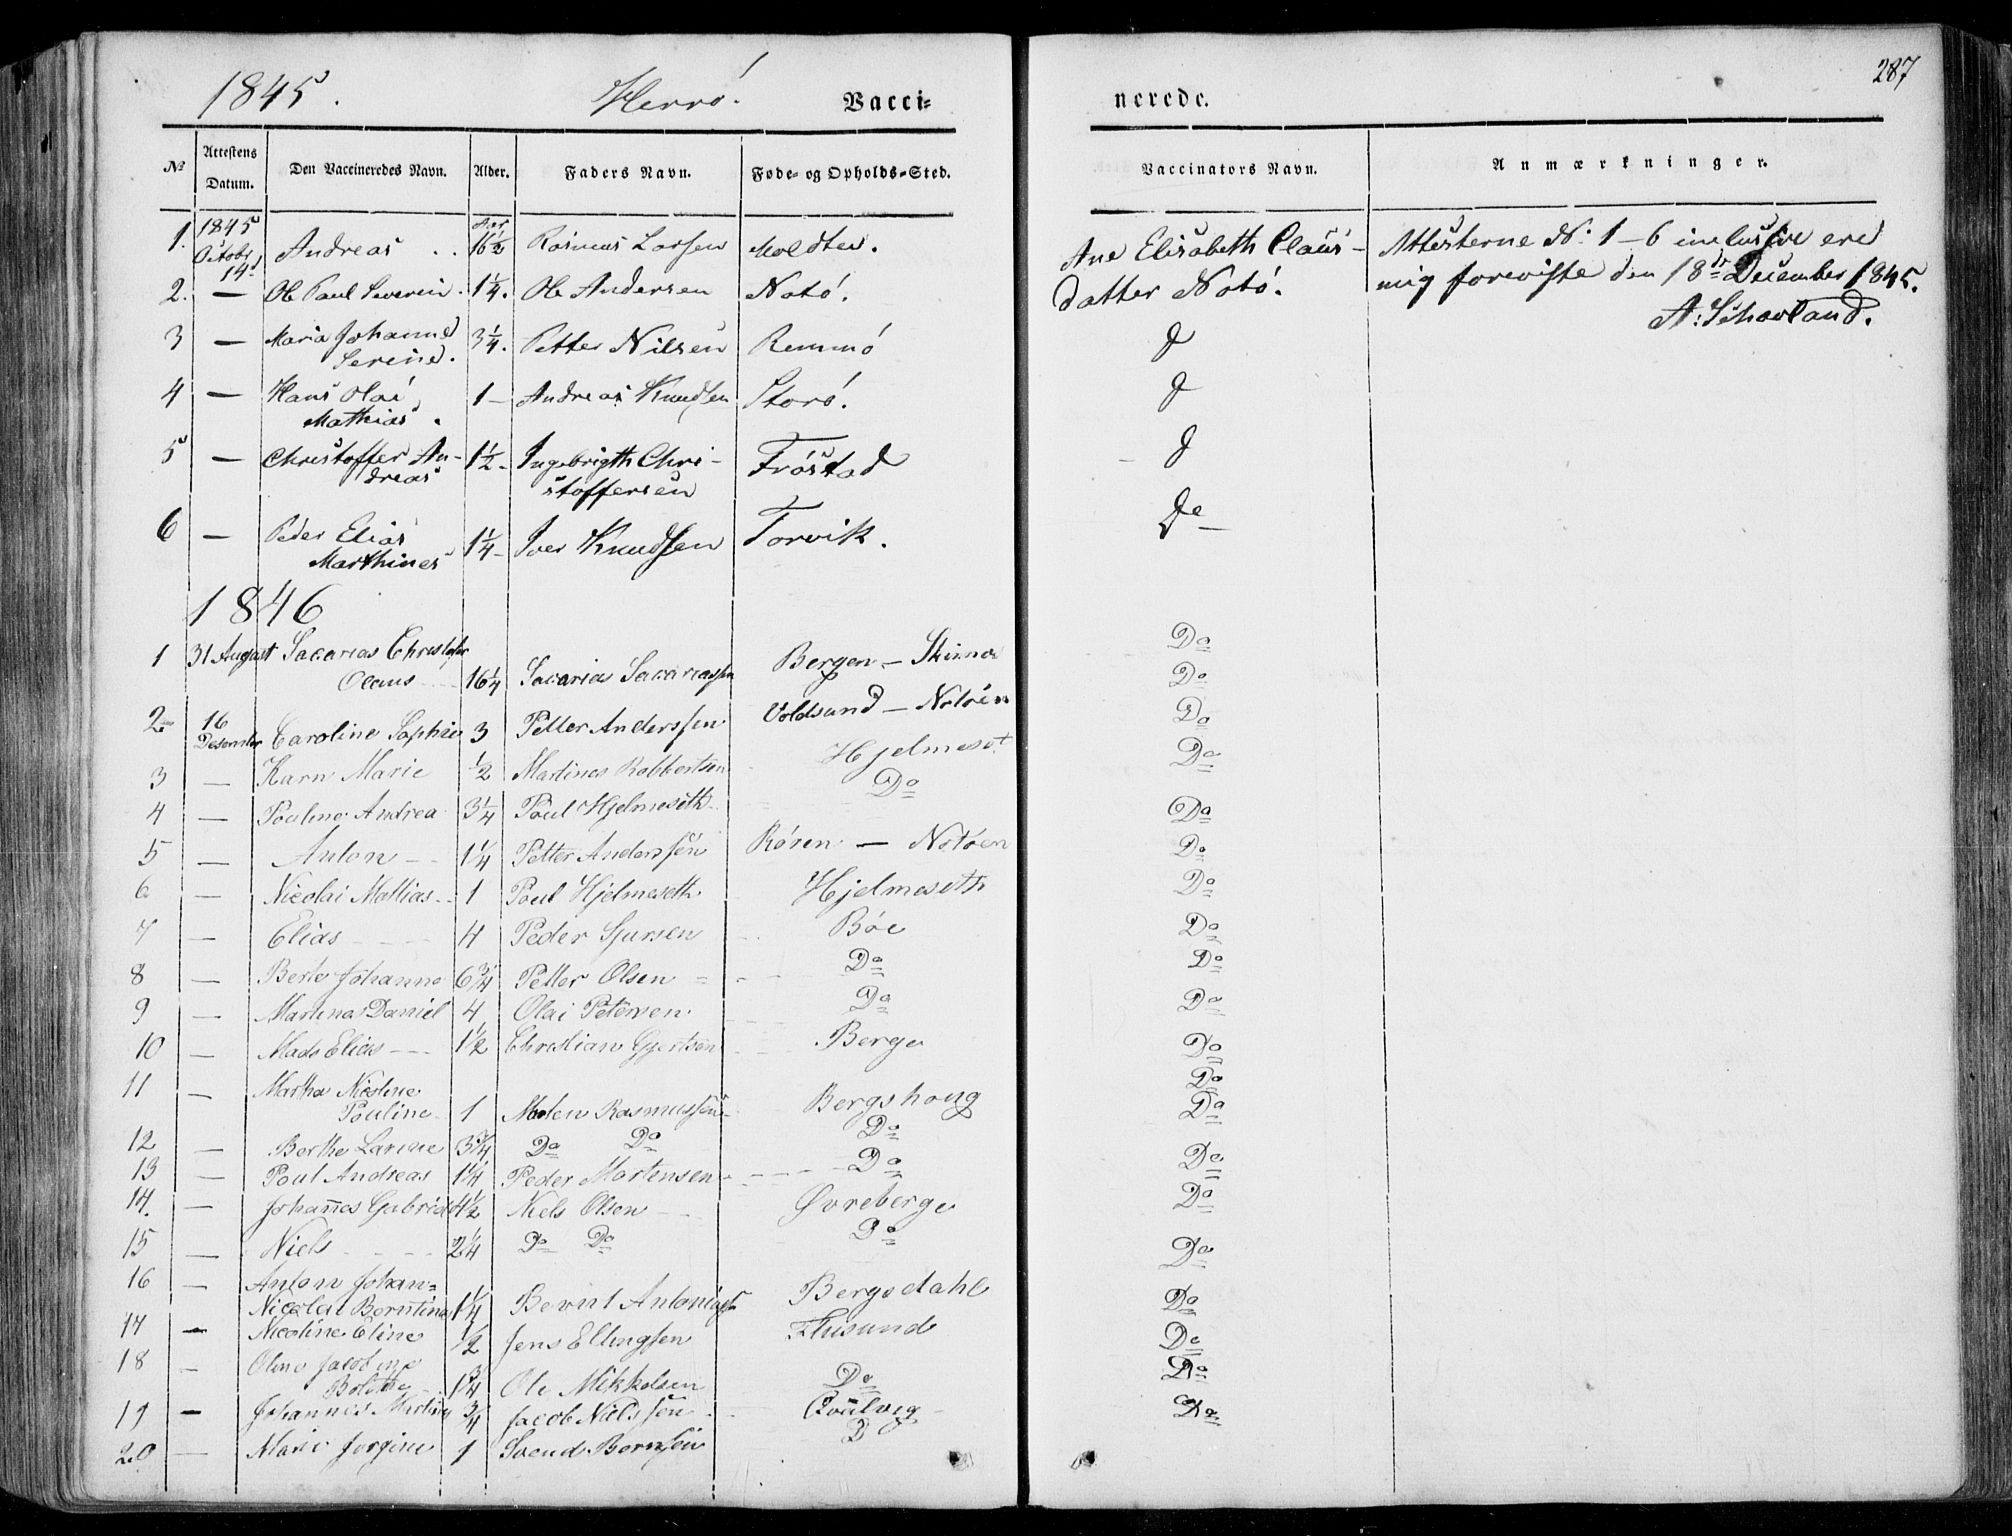 1845. Herrö. Vacci=
nerede. 287
No Attestens Datum. Den Vaccineredes Navn. Alder. Faders Navn. Føde= og Opholds=Sted. Vaccinators Navn. Anmærkninger.
1. 1845 Octobr 14de Andreas .. Aar 16½ Rasmus Larsen Moldtu. Ane Elisabeth Claus- Attesterne No. 1-6 inclusive ere
2. — Ole Paul Severin. 1¼. Ole Andersen Notö. datter Notö. mig foreviste den 18de December 1845.
A: Schavland.
3 — Maria Johanne 3¼. Petter Nilsen Remmö D
Serine.
4 — Hans Olai 1 – Andreas Knudsen Storö. D
Mathias.
5 — Christoffer An- 1½– Ingebrigth Chri- Fröstad D
dreas stoffersen
6 — Peder Elias 1¼– Iver Knudsen Torvik. Do
Marthines
1846
1 31 August Sacarias Christofer Bergen – Do
Olaus 16¼ Sacarias Sacariassen Do
2 16 Desember Caroline Sophie 3 Petter Anderssen Voldsund – Notöen Do
3 — Karn Marie ½ Martines Robbertsen Hjelmeset Do
4 — Pouline Andrea 3¼ Poul Hjelmeseth Do Do
5 — Anton – – 1¼ Petter Anderssen Rören – Notöen Do
6 — Nicolai Mathias 1 Poul Hjelmeseth Hjelmeseth Do
7 — Elias 4 Peder Sjursen Böe Do
8 — Berte Johanne 6¾ Petter Olsen Do Do
9 — Martinus Daniel 4 Olai Petersen Do Do
10 — Mads Elias – – 1½ Christian Gjertsen Berge Do
11 — Martha Nicoline Do
Pouline 1 Rasmussen Bergshoug Do
12 — Berthe Larine 3¾ Do Do Do
13 — Poul Andreas 1¼ Peder Mortensen Do Do
14. — Johannes Gabriel 4½ Niels Olsen Øvreberge Do
15 — Niels 2¼ Do Do Do Do
16 — Anton Johan=
Nicolai Berntinus 1¼ Bernt Bergsdahl Do
17 — Nicoline Eline ½ Jens Ellingsen Flusund Do
18 — Oline Jacobine Do
Bolette 1¾ Ole Mikkelsen Do
19 — Johannes ¾ Jacob Nielssen Do
20 — Marie Jorgine 1 Svend Bernsen D